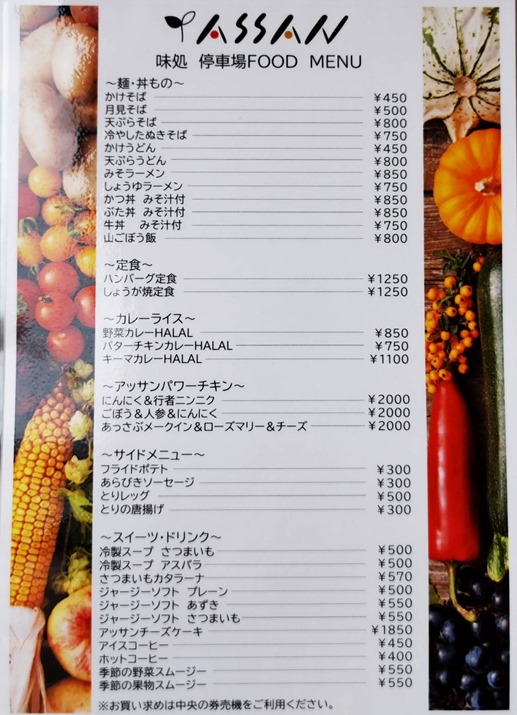 ASSAN
味処 停車場FOOD MENU
～麺・丼もの～
かけそば ¥450
月見そば ¥500
天ぷらそば ¥800
冷やしたぬきそば ¥750
かけうどん ¥450
天ぷらうどん ¥800
みそラーメン ¥850
しょうゆラーメン ¥750
かつ丼 みそ汁付 ¥850
ぶた丼 みそ汁付 ¥850
牛丼 みそ汁付 ¥750
山ごぼう飯 ¥800
～定食～
ハンバーグ定食 ¥1250
しょうが焼定食 ¥1250
～カレーライス～
野菜カレーHALAL ¥850
バターチキンカレーHALAL ¥750
キーマカレーHALAL ¥1100
～アッサンパワーチキン～
にんにく&行者ニンニク ¥2000
ごぼう&人参&にんにく ¥2000
あっさぶメークイン&ローズマリー&チーズ ¥2000
～サイドメニュー～
フライドポテト ¥300
あらびきソーセージ ¥300
とりレッグ ¥500
とりの唐揚げ ¥300
～スイーツ・ドリンク～
冷製スープ さつまいも ¥500
冷製スープ アスパラ ¥500
さつまいもカタラーナ ¥570
ジャージーソフト プレーン ¥500
ジャージーソフト あずき ¥550
ジャージーソフト さつまいも ¥550
アッサンチーズケーキ ¥1850
アイスコーヒー ¥450
ホットコーヒー ¥400
季節の野菜スムージー ¥550
季節の果物スムージー ¥550
※お買い求めは中央の券売機をご利用ください。